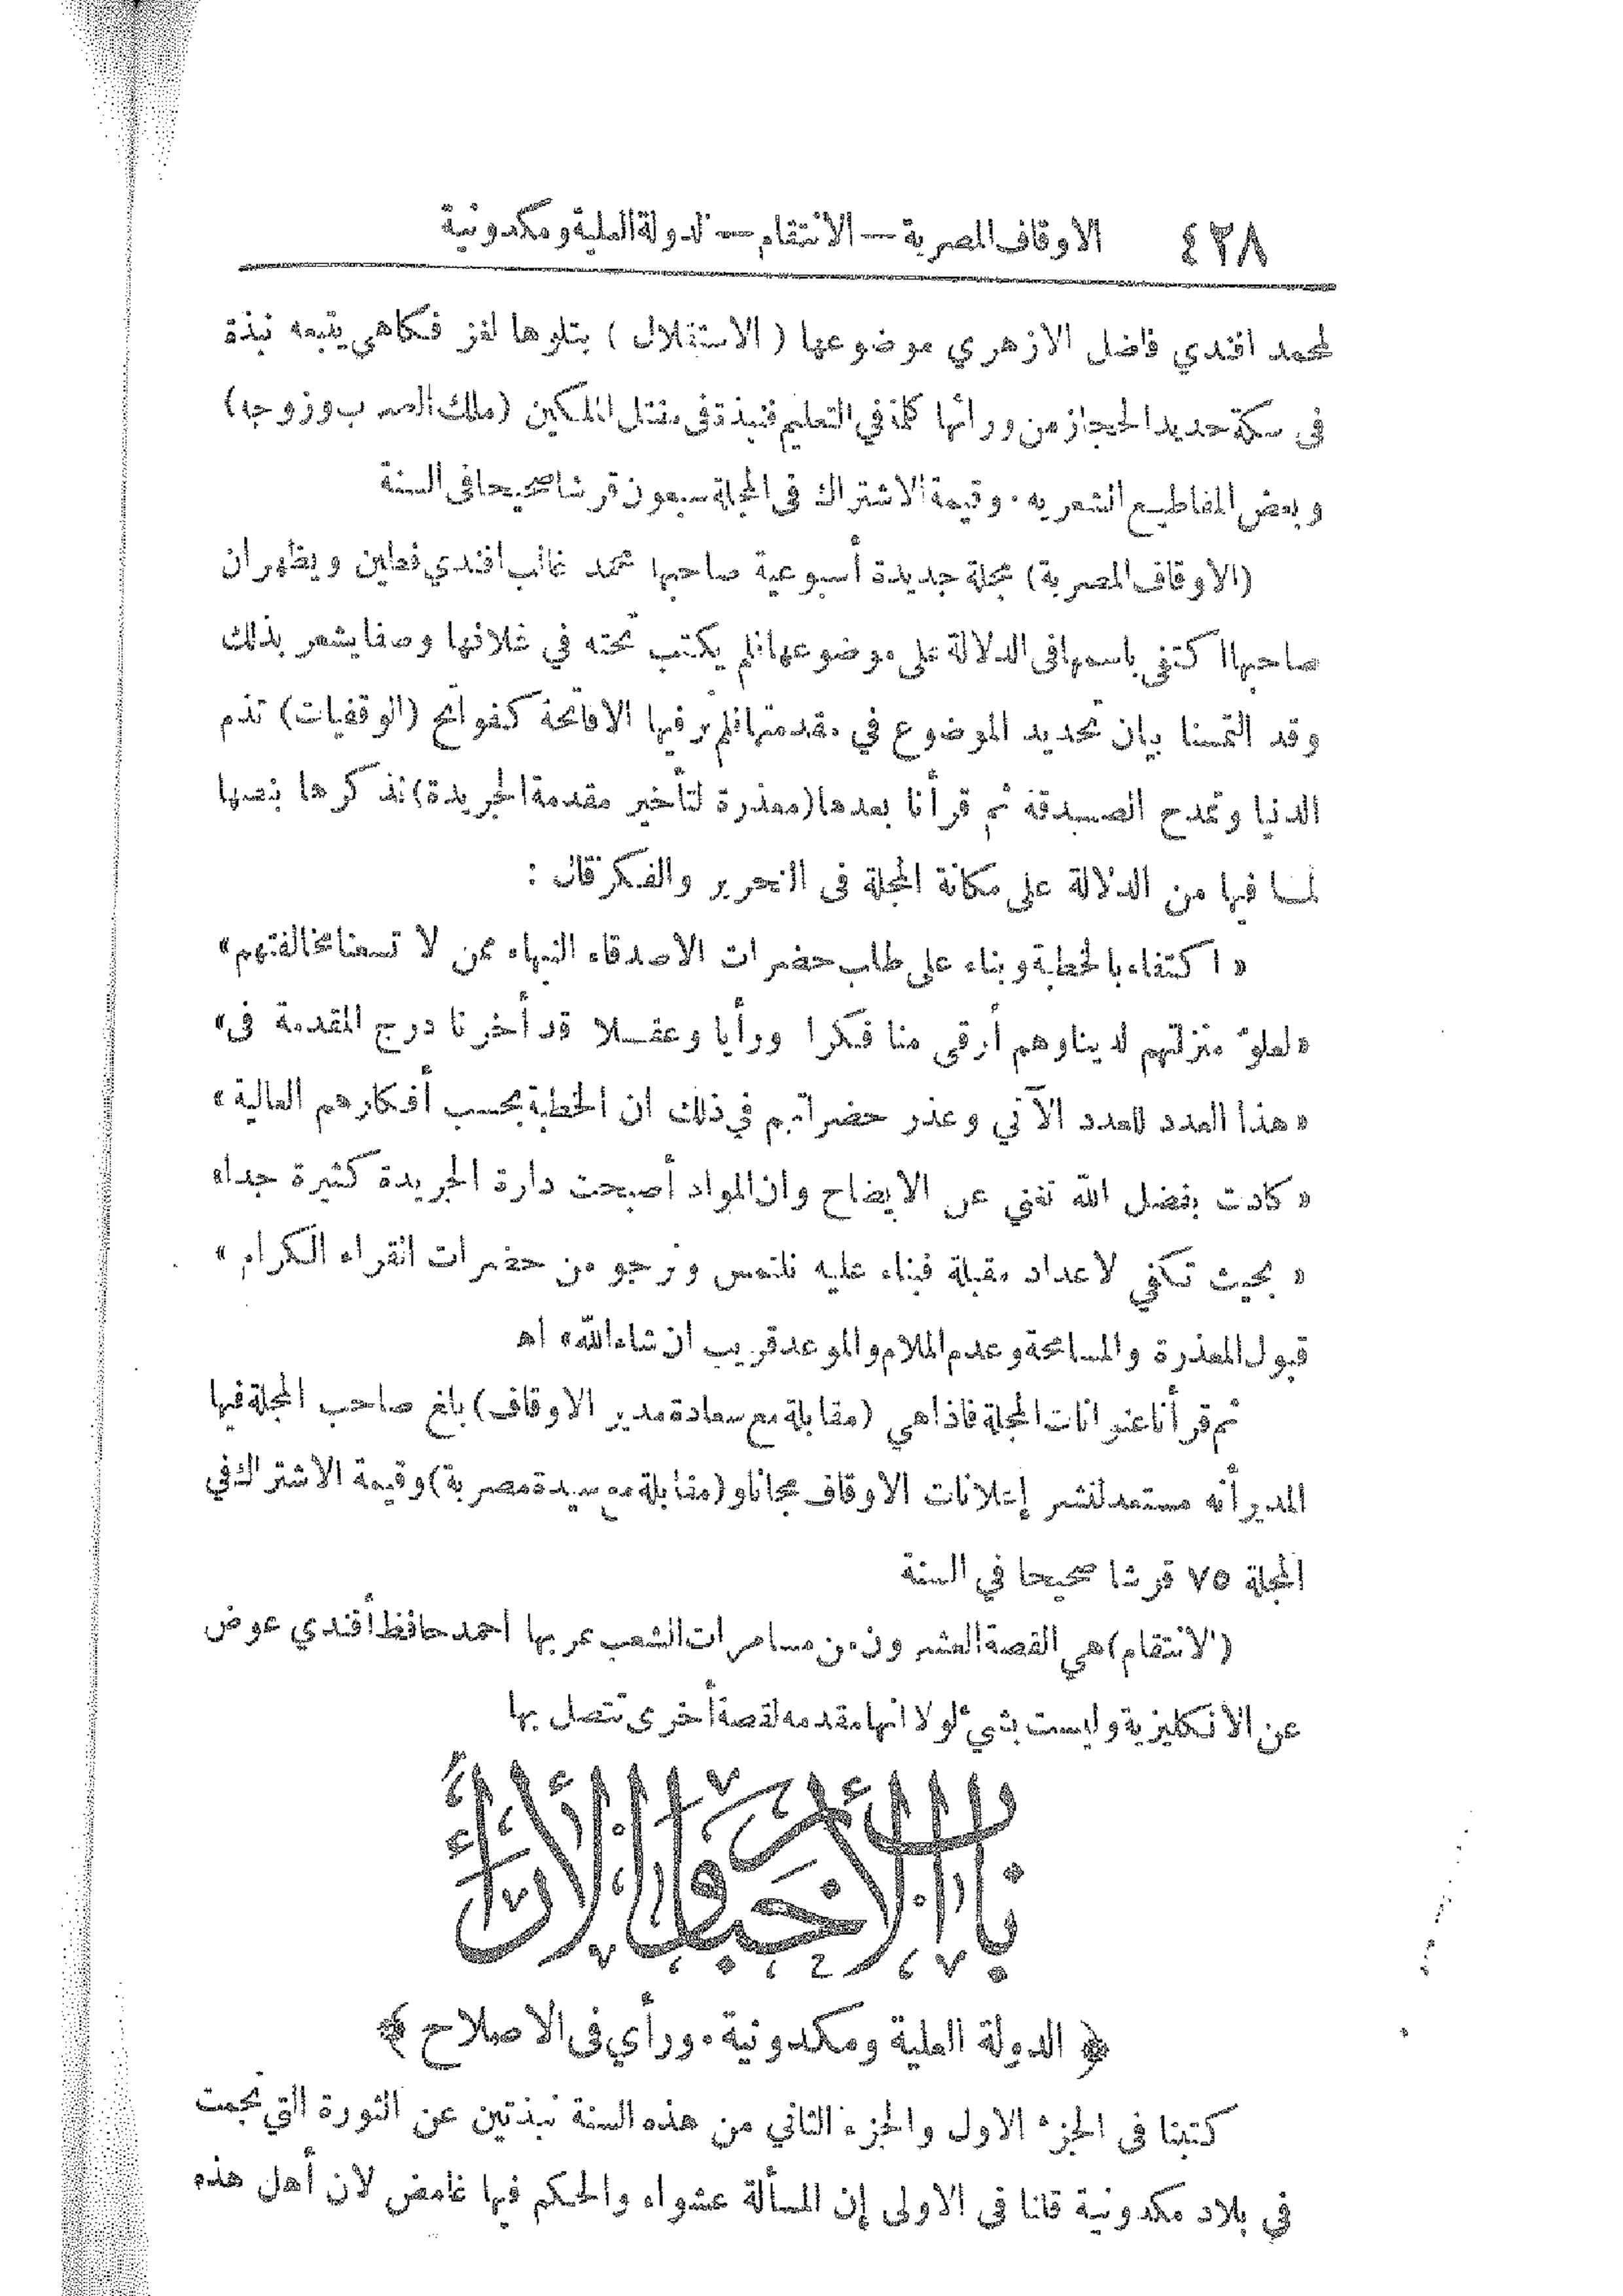 ٤٢٨ الاوقاف المصرية — الانتقام — الدولة العلية ومكدونية
لمحمد افندي فاضل الازهري موضوعها ( الاستقلال ) يتلوها لغز فكاهي يتبعه نبذة
فى سكة حديد الحجاز من ورائها كلمة في التعليم فنبذة فى مقتل الملكين (ملك الصرب وزوجه)
وبعض المقاطيع الشعريه . وقيمة الاشتراك فى المجلة سبعون قرشا صحيحا فى السنة
(الاوقاف المصرية) مجلة جديدة أسبوعية صاحبها محمد غالب افندي فطين ويظهر ان
صاحبها اكتفى باسمها فى الدلالة على موضوعها فلم يكتب تحته في غلافها وصفا يشعر بذلك
وقد التمسنا بيان تحديد الموضوع في مقدمتها فلم نر فيها الا فاتحة كفواتح (الوقفيات) تذم
الدنيا وتمدح الصدقة ثم قرأنا بعدها (معذرة لتأخير مقدمة الجريدة) نذكرها بنصها
لما فيها من الدلالة على مكانة المجلة فى التحرير والفكر قال :
« اكتفاء بالخطبة وبناء على طلب حضرات الاصدقاء النبهاء ممن لا تسعنا مخالفتهم »
« لعلوّ منزلتهم لدينا وهم أرقى منا فكرا ورأيا وعقلا قد أخرنا درج المقدمة فى »
« هذا العدد للعدد الآتي وعذر حضراتهم في ذلك ان الخطبة بحسب أفكارهم العالية »
« كادت بفضل الله تغني عن الايضاح وان المواد أصبحت دارة الجريدة كثيرة جدا »
« بحيث تكفي لاعداد مقبلة فبناء عليه نلتمس ونرجو من حضرات القراء الكرام »
قبول المعذرة والمسامحة وعدم الملام والموعد قريب ان شاء الله » اهـ
ثم قرأنا عنوانات المجلة فاذا هي (مقابلة مع سعادة مدير الاوقاف) بلغ صاحب المجلة فيها
المدير أنه مستعد لنشر إعلانات الاوقاف مجانا و (مقابلة مع سيدة مصرية) وقيمة الاشتراك في
المجلة ٧٥ قرشا صحيحا في السنة
(الانتقام) هي القصة العشرون من مسامرات الشعب عربها احمد حافظ أفندي عوض
عن الانكليزية وليست بشيء لولا انها مقدمه لقصة أخرى تتصل بها
باب الاخبار والآراء
﴿ الدولة العلية ومكدونية . ورأي فى الاصلاح ﴾
كتبنا فى الجزء الاول والجزء الثاني من هذه السنة نبذتين عن الثورة التي نجمت
في بلاد مكدونية قلنا فى الاولى إن المسألة عشواء والحكم فيها غامض لان أهل هذه